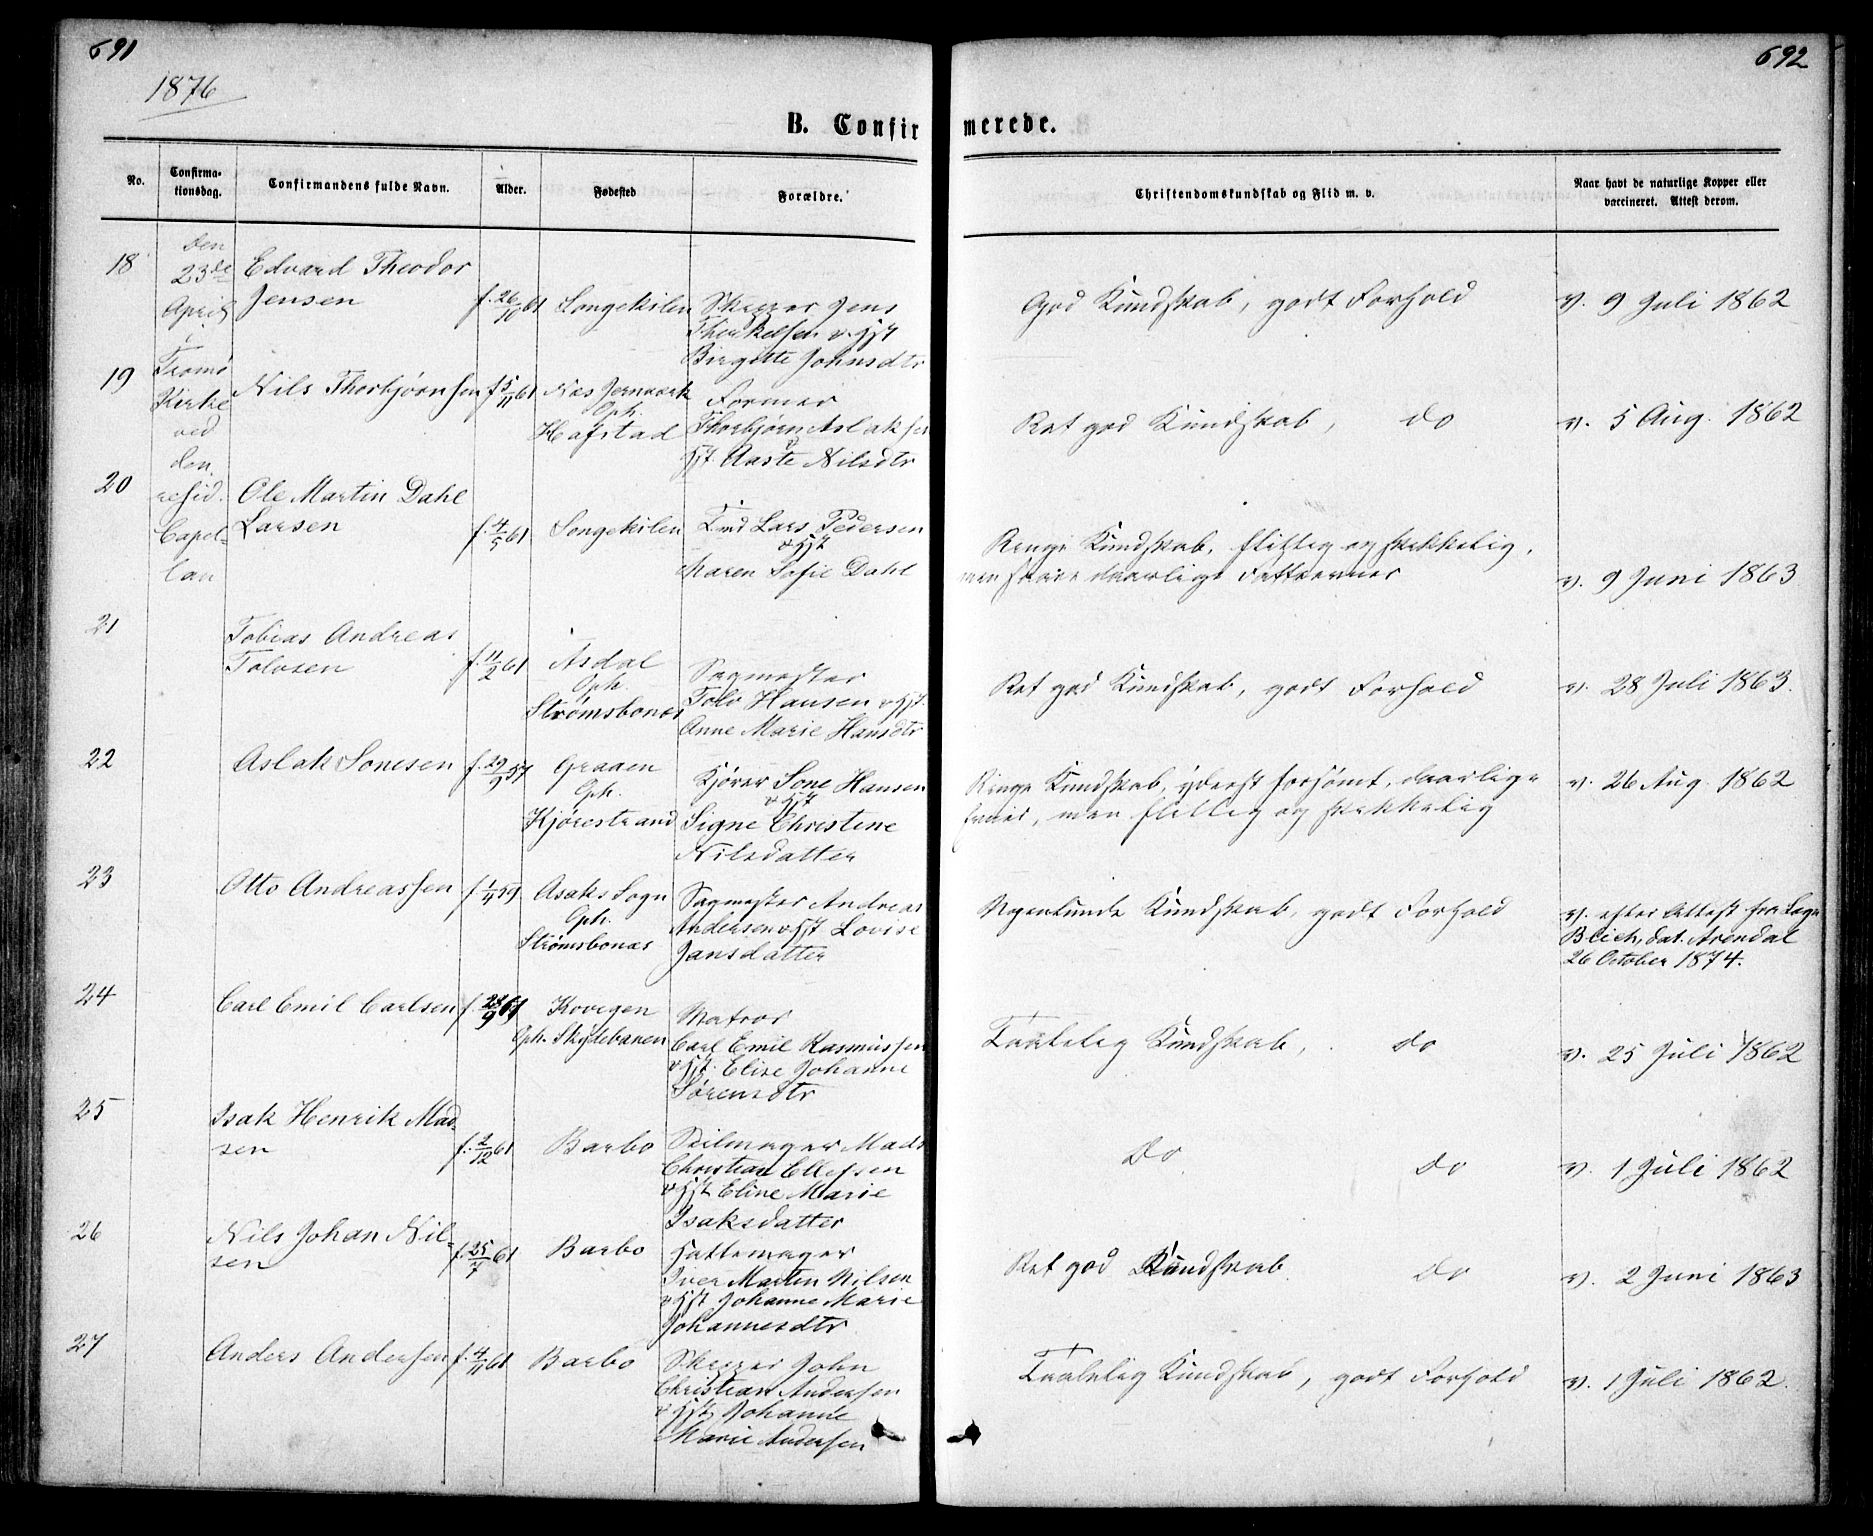 691
692
1876
B. Confirmerede.
No.
Confirma-
tionsdag.
Confirmandens fulde Navn.
Alder.
Fødested
Forældre.
Christendomskundskab og Flid m. v.
Naar havt de naturlige Kopper eller
vaccineret. Attest derom.
den
23de
April
i
Tromø
Kirke
ved
den
resid.
Capel-
lan
18
Edvard Theodor
Jensen
f. 26/10 61
Songekilen
Skipper Jens
Therkelsen & Hst
Birgitte Johnsdtr
God Kundskab, godt Forhold
v. 9 Juli 1862
19
Nils Thorbjørnsen
f 5/11 61
Næs Jernværk
Oph.
Hafstad
Former
Thorbjørn Aslaksen
&
Hst. Aaste Nilsdtr
Ret god Kundskab, do
v. 5 Aug. 1862
20
Ole Martin Dahl
Larsen
f. 4/5 61
Songekilen
Lars Pedersen
& Hst
Maren Sofie Dahl
Ringe Kundskab, flittig og skikkelig,
men daarlige Fatteevner
v. 9 Juni 1863
21
Tobias Andreas
Tolvsen
f. 11/2 61
Asdal
Oph.
Strømsbonæs
Sagmester
Tolv Hansen & Hst.
Anne Marie Hansdtr
Ret god Kundskab, godt Forhold
v. 28 Juli 1863.
22
Aslak Sonesen
f. 29/9 57
Graaen
Oph.
Kjørestrand
Kjører Sone Hansen
& Hst
Signe Christine
Nilsdatter
Ringe Kundskab, yderst forsømt, daarlige
Evner, men flittig og skikkelig
v. 26 Aug. 1862
23
Otto Andreassen
f 1/4 59
Asaks Sogn
Oph.
Strømsbonæs
Sagmester Andreas
Andersen & Hst Lovise
Jansdatter
Nogenlunde Kundskab, godt Forhold
v. efter Attest fra Læge
Bleich, dat. Arendal
26 October 1874.
24
Carl Emil Carlsen
f. 28/9 61
Kovegen
Oph. Skydebanen
Matros
Carl Emil Rasmussen
& Hst. Elise Johanne
Sørensdtr
Taalelig Kundskab, do
v. 25 Juli 1862
25
Isak Henrik Mad-
sen
f. 2/12 61
Barbo
Seilmager Mads
Christian Ellefsen
& Hst Eline Marie
Isaksdatter
Do do
v. 1 Juli 1862
26
Nils Johan Nil-
sen
f. 25/7 61
Barbo
Hattemager
Iver Martin Nilsen
& Hst Johanne Marie
Johannesdtr
Ret god Kundskab do
v. 2 Juni 1863
27
Anders Andersen
f. 4/11 61
Barbo
Skipper John
Christian Andersen
& Hst Johanne
Marie Andersen
Taalelig Kundskab, godt Forhold
v. 1 Juli 1862.